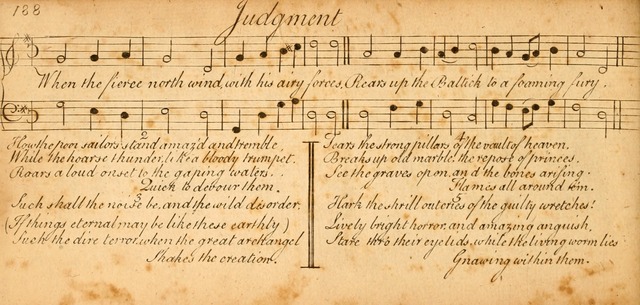 188
Judgment
When the fierce north wind, with his airy forces, Rears up the Baltick to a foaming fury.
2
How the poor sailors stand amaz'd and tremble
While the hoarse thunder, like a bloody trumpet.
Roars a loud onset to the gaping waters. .
Quick to debour them.
3
Such shall the noise be, and the wild disorder,
(If things eternal may be like these earthly)
Such the dire terror, when the great archangel
Shakes the creation.
4
Tears the strong pillars of the vault of heaven,
Breaks up old marble, the repose of princes,
See the graves open, and the bones arising.
Flames all around 'em.
5
Hark the shrill outcries of the guilty wretches!
Lively bright horror, and amazing anguish,
Stare thro' their eyelids, while the living worm lies
Gnawing within them.